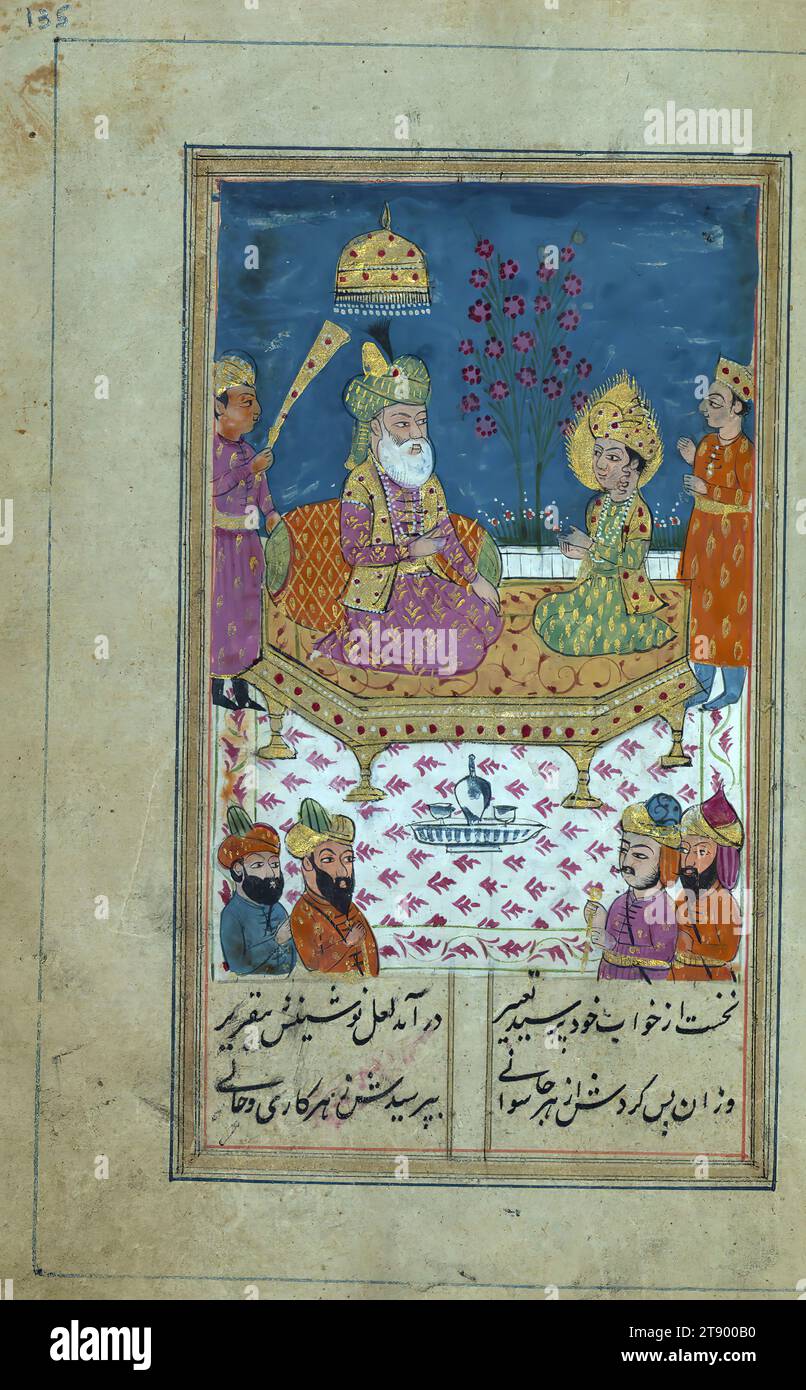 135
نخست از خواب خود پرسید تعبیر در آمد لعل نوشینش بتقریر
وزان پس کردش از هر جا سوالی بپرسیدش ز هر کاری و حالی
alamy
Image ID: 2T900B0
www.alamy.com